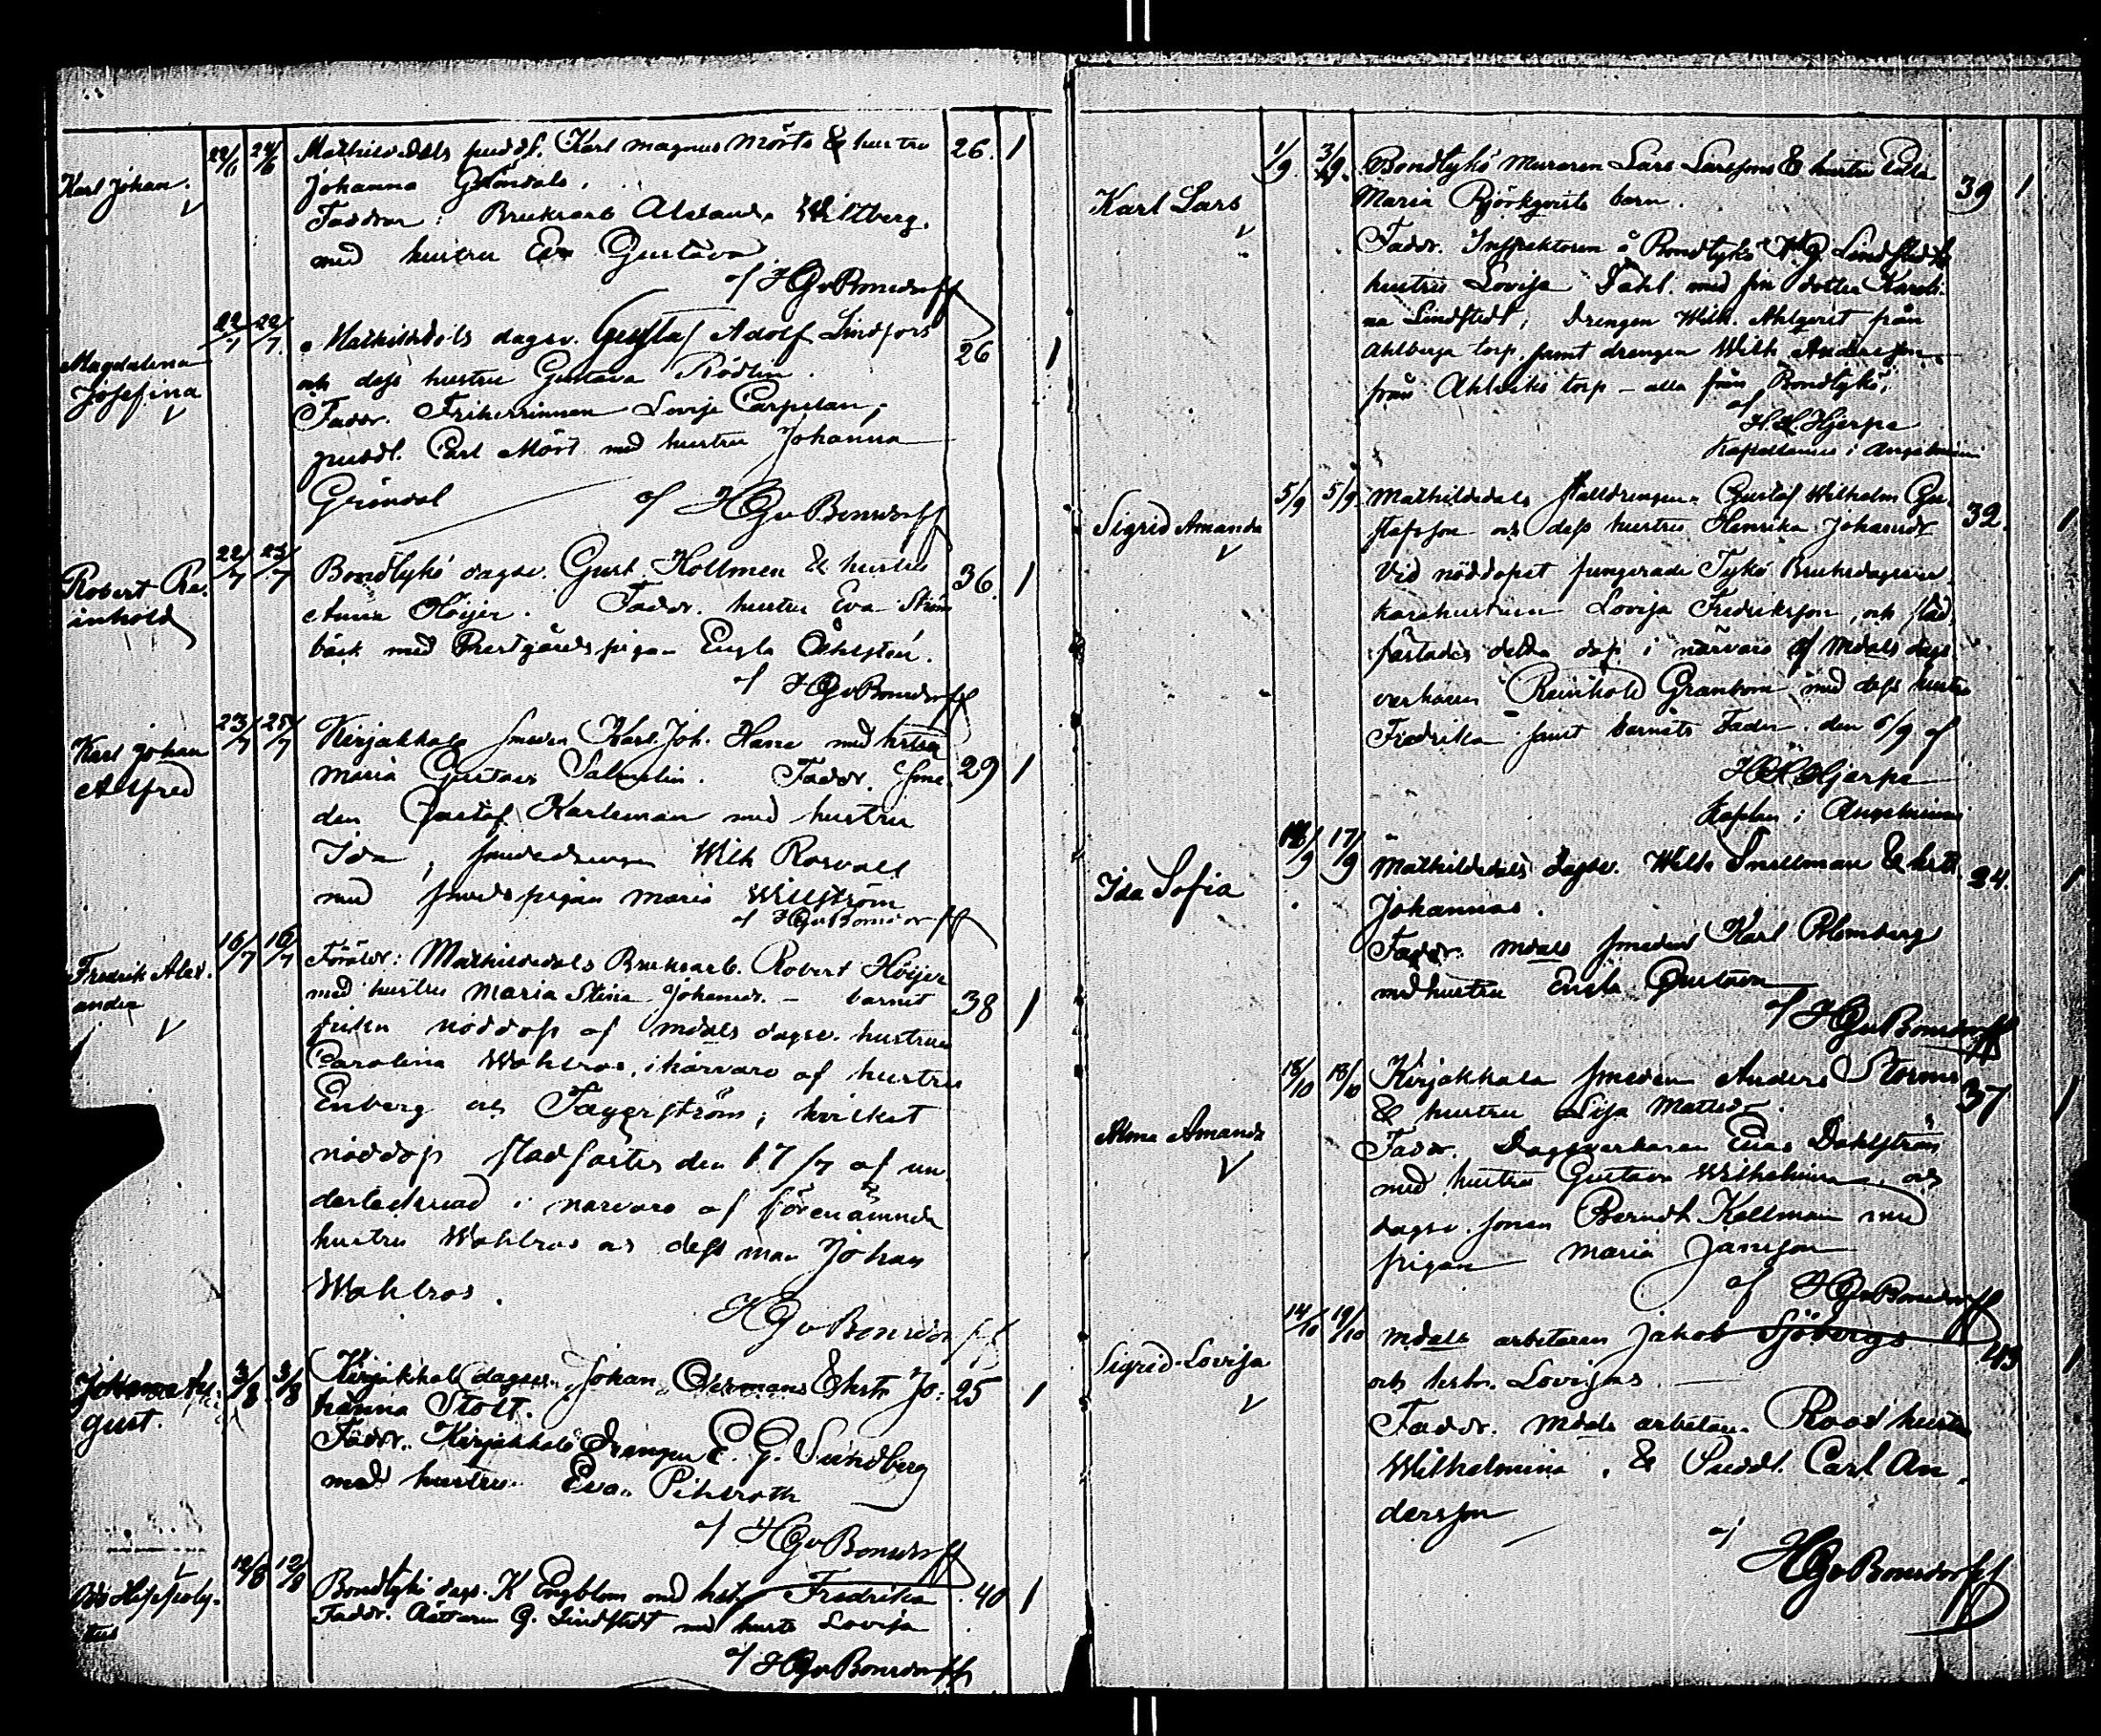 Karl Johan.
22/6 24/6
Mathildedals puddl. Karl Magnus Mört & hustru 26. 1
Johanna Gröndals.
Faddrar: Bruksarb Alexand. Wiltberg.
med hustru Eva Gustava
af HGvBonsdorff
Magdalena
Josefina
22/7 22/7
Mathildedals dagsv. Gustaf Adolf Lindfors 26 1
och dess hustru Gustava Rödlin.
Faddr. Friherrinnan Lovisa Carpelan,
puddl. Carl Mört med hustru Johanna
Gröndal af HGvBonsdorff
Robert Re-
inhold
22/7 23/7
Bondtykö dagsv. Gust Hollmen & hustru 36. 1
Anna Höijer. Faddr. hustru Eva Ström
bäck med Prestgårds pigan Engla Öhlsten.
af HGvBonsdorff
Karl Johan
Alfred
23/7 25/7
Kirjakkala smeden Karl. Joh. med 29 1
Maria Gustava Salmelin. Faddr. Sme-
den Gustaf Karleman med hustru
Ida, smededrengen Wilh Rosvall
med smedspigan Maria Willström
af HGvBonsdorff
Fredrik Alex-
ander
16/7 16/7
Föräldr: Mathildedals Bruksarb. Robert Höijer
med hustru Maria Stina Johansd. – barnet 38 1
nöddop af Mdals dagsv. hustrun
Carolina Wahlros, i närvaro af hustru
Enberg och Fagerström; hvilket
nöddop stadfästes den 17/7 af un
dertecknad i närvaro af förenämnda
hustru Wahlros och dess man Johan
Wahlros.
HGvBonsdorff
Johan Au-
gust.
3/8 3/8
Kirjakkala dagsv. Johan Öhmans & hstr Jo- 25 1
hanna Stolt.
Faddr. Kirjakkala Drengen E. G. Sundberg
med hustru Eva Pihlroth
af HGvBonsdorff
Hippoly-
tus
12/8 12/8
Bondtykö dags. K Engblom med hstr Fredrika 40 1
Faddr. Rättaren G. Lindstedt med hustr Lovisa
af HGvBonsdorff
Karl Lars
1/9 3/9
Bondtykö Muraren Lars Larssons & hustru Edla 39 1
Maria Björkqvists barn.
Faddr. Inspektoren å Bondtykö G. Lindstedts
hustru Lovisa Dahl. med sin dotter Karoli-
na Lindstedt; Drengen Wilh. Ahlqvist från
Ahlberga torp, samt drengen Wilh Andersson
från torp – alla från Bondtykö;
af
H.H. Hjerpe
Kapellanus i Angelniemi
Sigrid Amanda
5/9 5/9
Mathildedals stalldrengen Gustaf Wilhelm Gu- 32. 1
stafsson och dess hustru Henrika Johansdr
Vid nöddopet fungerade Tykö Bruksdagsver-
karehustrun Lovisa Fredriksson, och stad-
fästades detta dop i närvaro af Mdals dags
verkaren Reinhold Granbom med dess hustru
Fredrika samt barnets Fader. den 5/9 af
H.H. Hjerpe
Kaplan i Angelniemi
Ida Sofia
16/9 17/9
Mathildedals dagsv. Wilh Snellman & hstr 24. 1
Johannas.
Faddr. Mdals smeden Karl Blomberg
med hustru Engla Gustava
af HGvBonsdorff
Alma Amanda
18/10 18/10
Kirjakkala smeden Anders Storms 37 1
& hustru Lisa Matsd.
Faddr. Dagsverkaren Elias Dahlström
med hustru Gustava Wilhelmina och
dagsv. sonen Berndt Kollman med
pigan Maria Jansson
af HGvBonsdorff
Sigrid Lovisa
14/10 19/10
Mdals arbetaren Jakob Sjöbergs 43 1
och hstr. Lovisas
Faddr. Mdals arbetaren Roos hustru
Wilhelmina, & Puddl. Carl An-
dersson
af
HGvBonsdorff